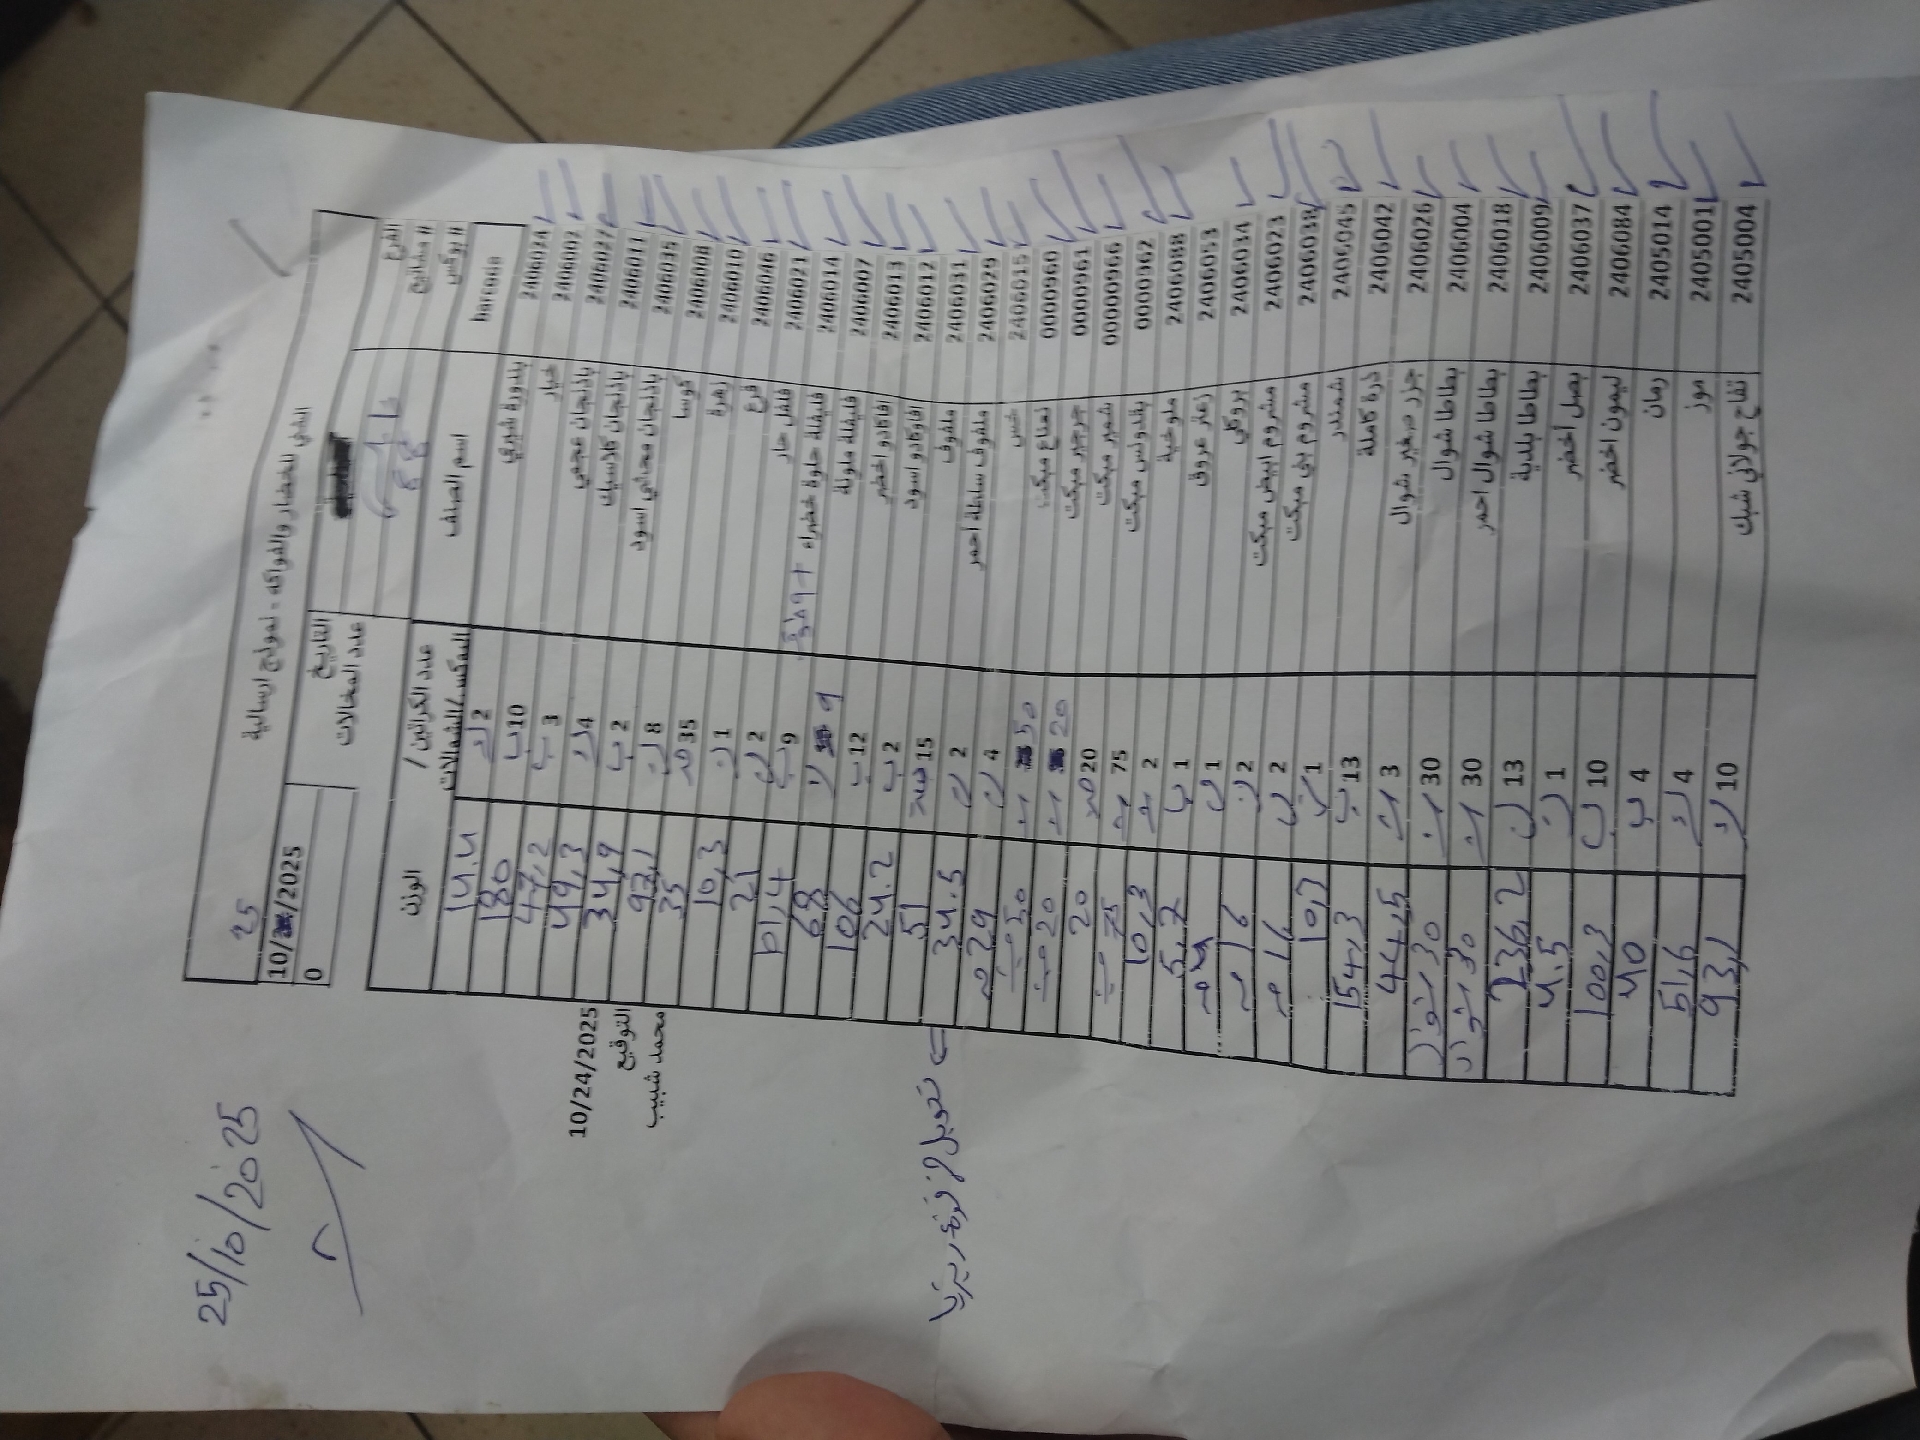 25/10/2025
الشني للخضار والفواكه - نموذج ارسالية
25
الفرع التاريخ 10/2025
# مفاتيح عدد المخالات 0
# بوكس
barcode اسم الصنف عدد الكراتين / البوكس/الشوالات الوزن
2406024 بندورة شيري 2 14.4
2406002 خيار 10 180
2406027 باذنجان عجمي 3 47,2
2406011 باذنجان كلاسيك 4 49,3
باذنجان محاشي اسود 2 34,9
2406035 كوسا 8 97,1
2406008 زهرة 35 35
2406010 قرع 1 10,3
2406046 فلفل حار 2 21
2406021 فليفلة حلوة خضراء 9 61,4
2406014 فليفلة ملونة 9 68
2406007 افاكادو اخضر 12 106
2406013 افوكادو اسود 2 24.2
2406012 ملفوف 15 51
2406031 ملفوف سلطة أحمر 2 34.5
2406029 خس 4 29
2406015 نعناع مبكت 50 50
0000960 جرجير مبكت 20 20
0000961 شمير مبكت 20 20
0000966 بقدونس مبكت 75 75
0000962 ملوخية 2 10,3
2406088 زعتر عروق 1 5,7
2406053 بروكلي 1
2406034 مشروم ابيض مبكت 2 16
2406023 مشروم بني مبكت 2 16
2406038 شمندر 1 10,7
2406045 ذرة كاملة 13 154,3
2406042 جزر صغير شوال 3 44,5
2406026 بطاطا شوال 30 30 شوال
2406004 بطاطا شوال احمر 30 30 شوال
2406018 بطاطا بلدية 13 236,2
2406009 بصل أخضر 1 4.5
2406037 ليمون اخضر 10 100,3
2406084 رمان 4 40
2405014 موز 4 51,6
2405001 تفاح جولاني شبك 10 93,1
2405004
10/24/2025
التوقيع
محمد شبيب